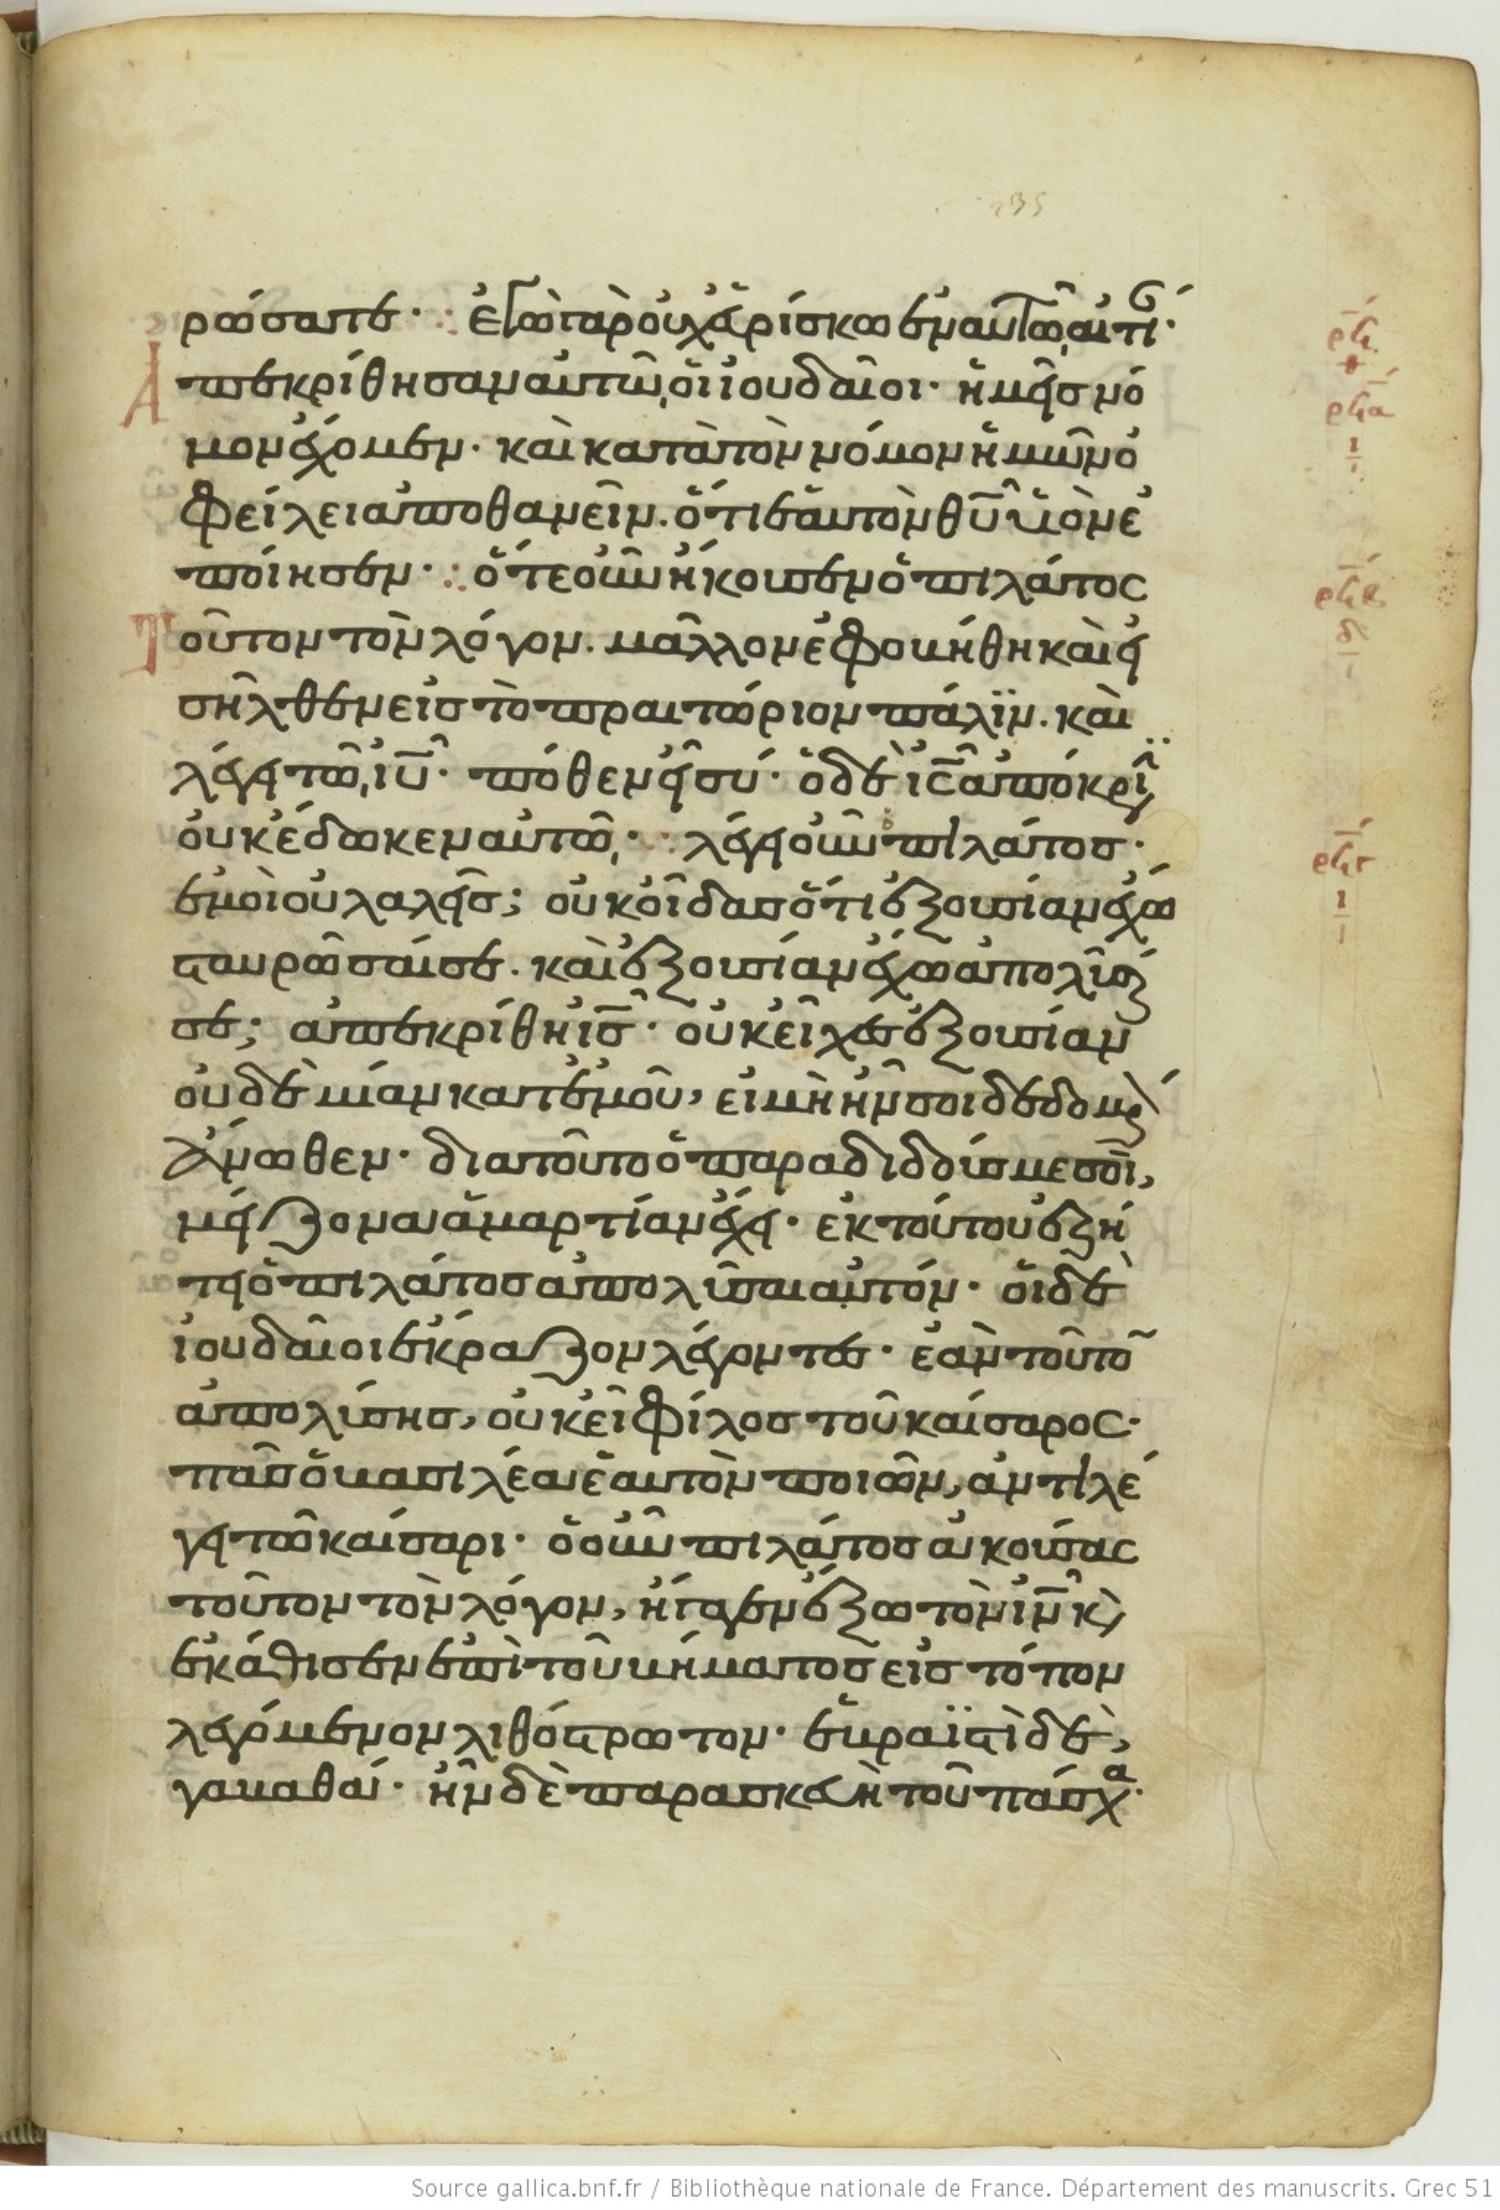 ρώσατε· ἐγὼ γὰρ οὐχ εὑρίσκω ἐν αὐτῶ αἰτί·
Ἀπεκρίθησαν αὐτῶ οἱ ἰουδαῖοι· ἡμεῖς νό
μον ἔχομεν· καὶ κατὰ τὸν νόμον ἡμῶν ὀ
φείλει ἀποθανεῖν. ὅτι ἑαυτὸν θῡ υἱὸν ἐ
ποίησεν· ὅτε οὖν ἤκουσεν ὁ πιλάτος
τοῦτον τὸν λόγον. μᾶλλον ἐφοβήθη καὶ εἰ
σῆλθεν εἰς τὸ πραιτώριον πάλϊν. καὶ
λέγει τῶ ιῡ· πόθεν εἶ σύ· ὁ δὲ ις̄ ἀπόκρι
οὐκ ἔδωκεν αὐτῶ· λέγει οὖν ὁ πιλάτος·
ἐμοὶ οὐ λαλεῖς; οὐκ οἶδας ὅτι ἐξουσίαν ἔχω
σταυρῶσαί σε. καὶ ἐξουσίαν ἔχω ἀπολῦσαί
σε; ἀπεκρίθη ις̄· οὐκ εἶχες ἐξουσίαν
οὐδὲ μίαν κατ ἐμοῦ, εἰ μὴ ἦν σοι δεδομέ
ἄνωθεν· διατοῦτο ὁ παραδιδούς με σοῖ,
μείζονα ἁμαρτίαν ἔχει· ἐκ τούτου ἐζή
τει ὁ πιλάτος ἀπολῦσαι αὐτόν· οἱ δὲ
ἰουδαῖοι ἔκραζον λέγοντες· ἐὰν τοῦτο̄
ἀπολύσης, οὐκ εἶ φίλος τοῦ καίσαρος·
πᾶς ὁ βασιλέα ἑαυτὸν ποιῶν, ἀντιλέ
γει τῶ καίσαρι· ὁ οὖν πιλάτος ἀκούσας
τοῦτον τὸν λόγον, ἤγαγεν ἔξω τὸν ιν̄ κὶ
ἐκάθισεν ἐπὶ τοῦ βήματος εἰς τόπον
λεγόμενον λιθόστρωτον· ἑβραϊστὶ δὲ,
γαβαθά· ἦν δὲ παρασκευὴ τοῦ πάσχα·